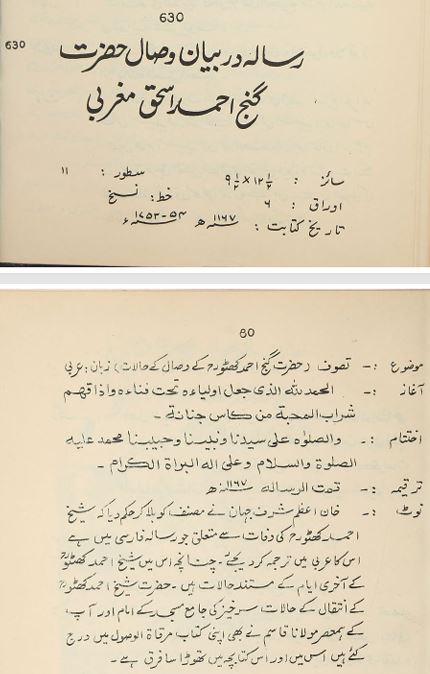 630
630
رسالہ در بیان وصال حضرت
گنج احمد اسحٰق مغربی
سائز : ۱۲½ × ۹½ سطور : ۱۱
اوراق : ۶ خط : نسخ
تاریخ کتابت : ۱۱۶۷ھ ۵۴-۱۷۵۳ء
60
موضوع :- تصوف (حضرت گنج احمد کھٹوؒ کے وصال کے حالات) زبان : عربی
آغاز :- الحمد للہ الذی جعل اولیاءہ تحت فناءہ واذاقھم
شراب المحبۃ من کاس جنانہ -
اختتام :- والصلوٰہ علی سیدنا ونبینا وحبیبنا محمد علیہ
الصلوۃ والسلام وعلی الہ البراۃ الکرام -
ترقیمہ :- تمت الرسالہ ۱۱۶۷ھ
نوٹ :- خان اعظم شرف جہان نے مصنف کو بلا کر حکم دیا کہ شیخ
احمد کھٹوؒ کی وفات سے متعلق جو رسالہ فارسی میں ہے
اس کا عربی میں ترجمہ کر دیجئے۔ چنانچہ اس میں شیخ احمد کھٹوؒ
کے آخری ایام کے مستند حالات ہیں۔ حضرت شیخ احمد کھٹوؒ
کے انتقال کے حالات سرخیز کی جامع مسجد کے امام اور آپ
کے ہمعصر مولانا قاسم نے بھی اپنی کتاب مرقاۃ الوصول میں درج
کئے ہیں اس میں اور اس کتابچہ میں تھوڑا سا فرق ہے -